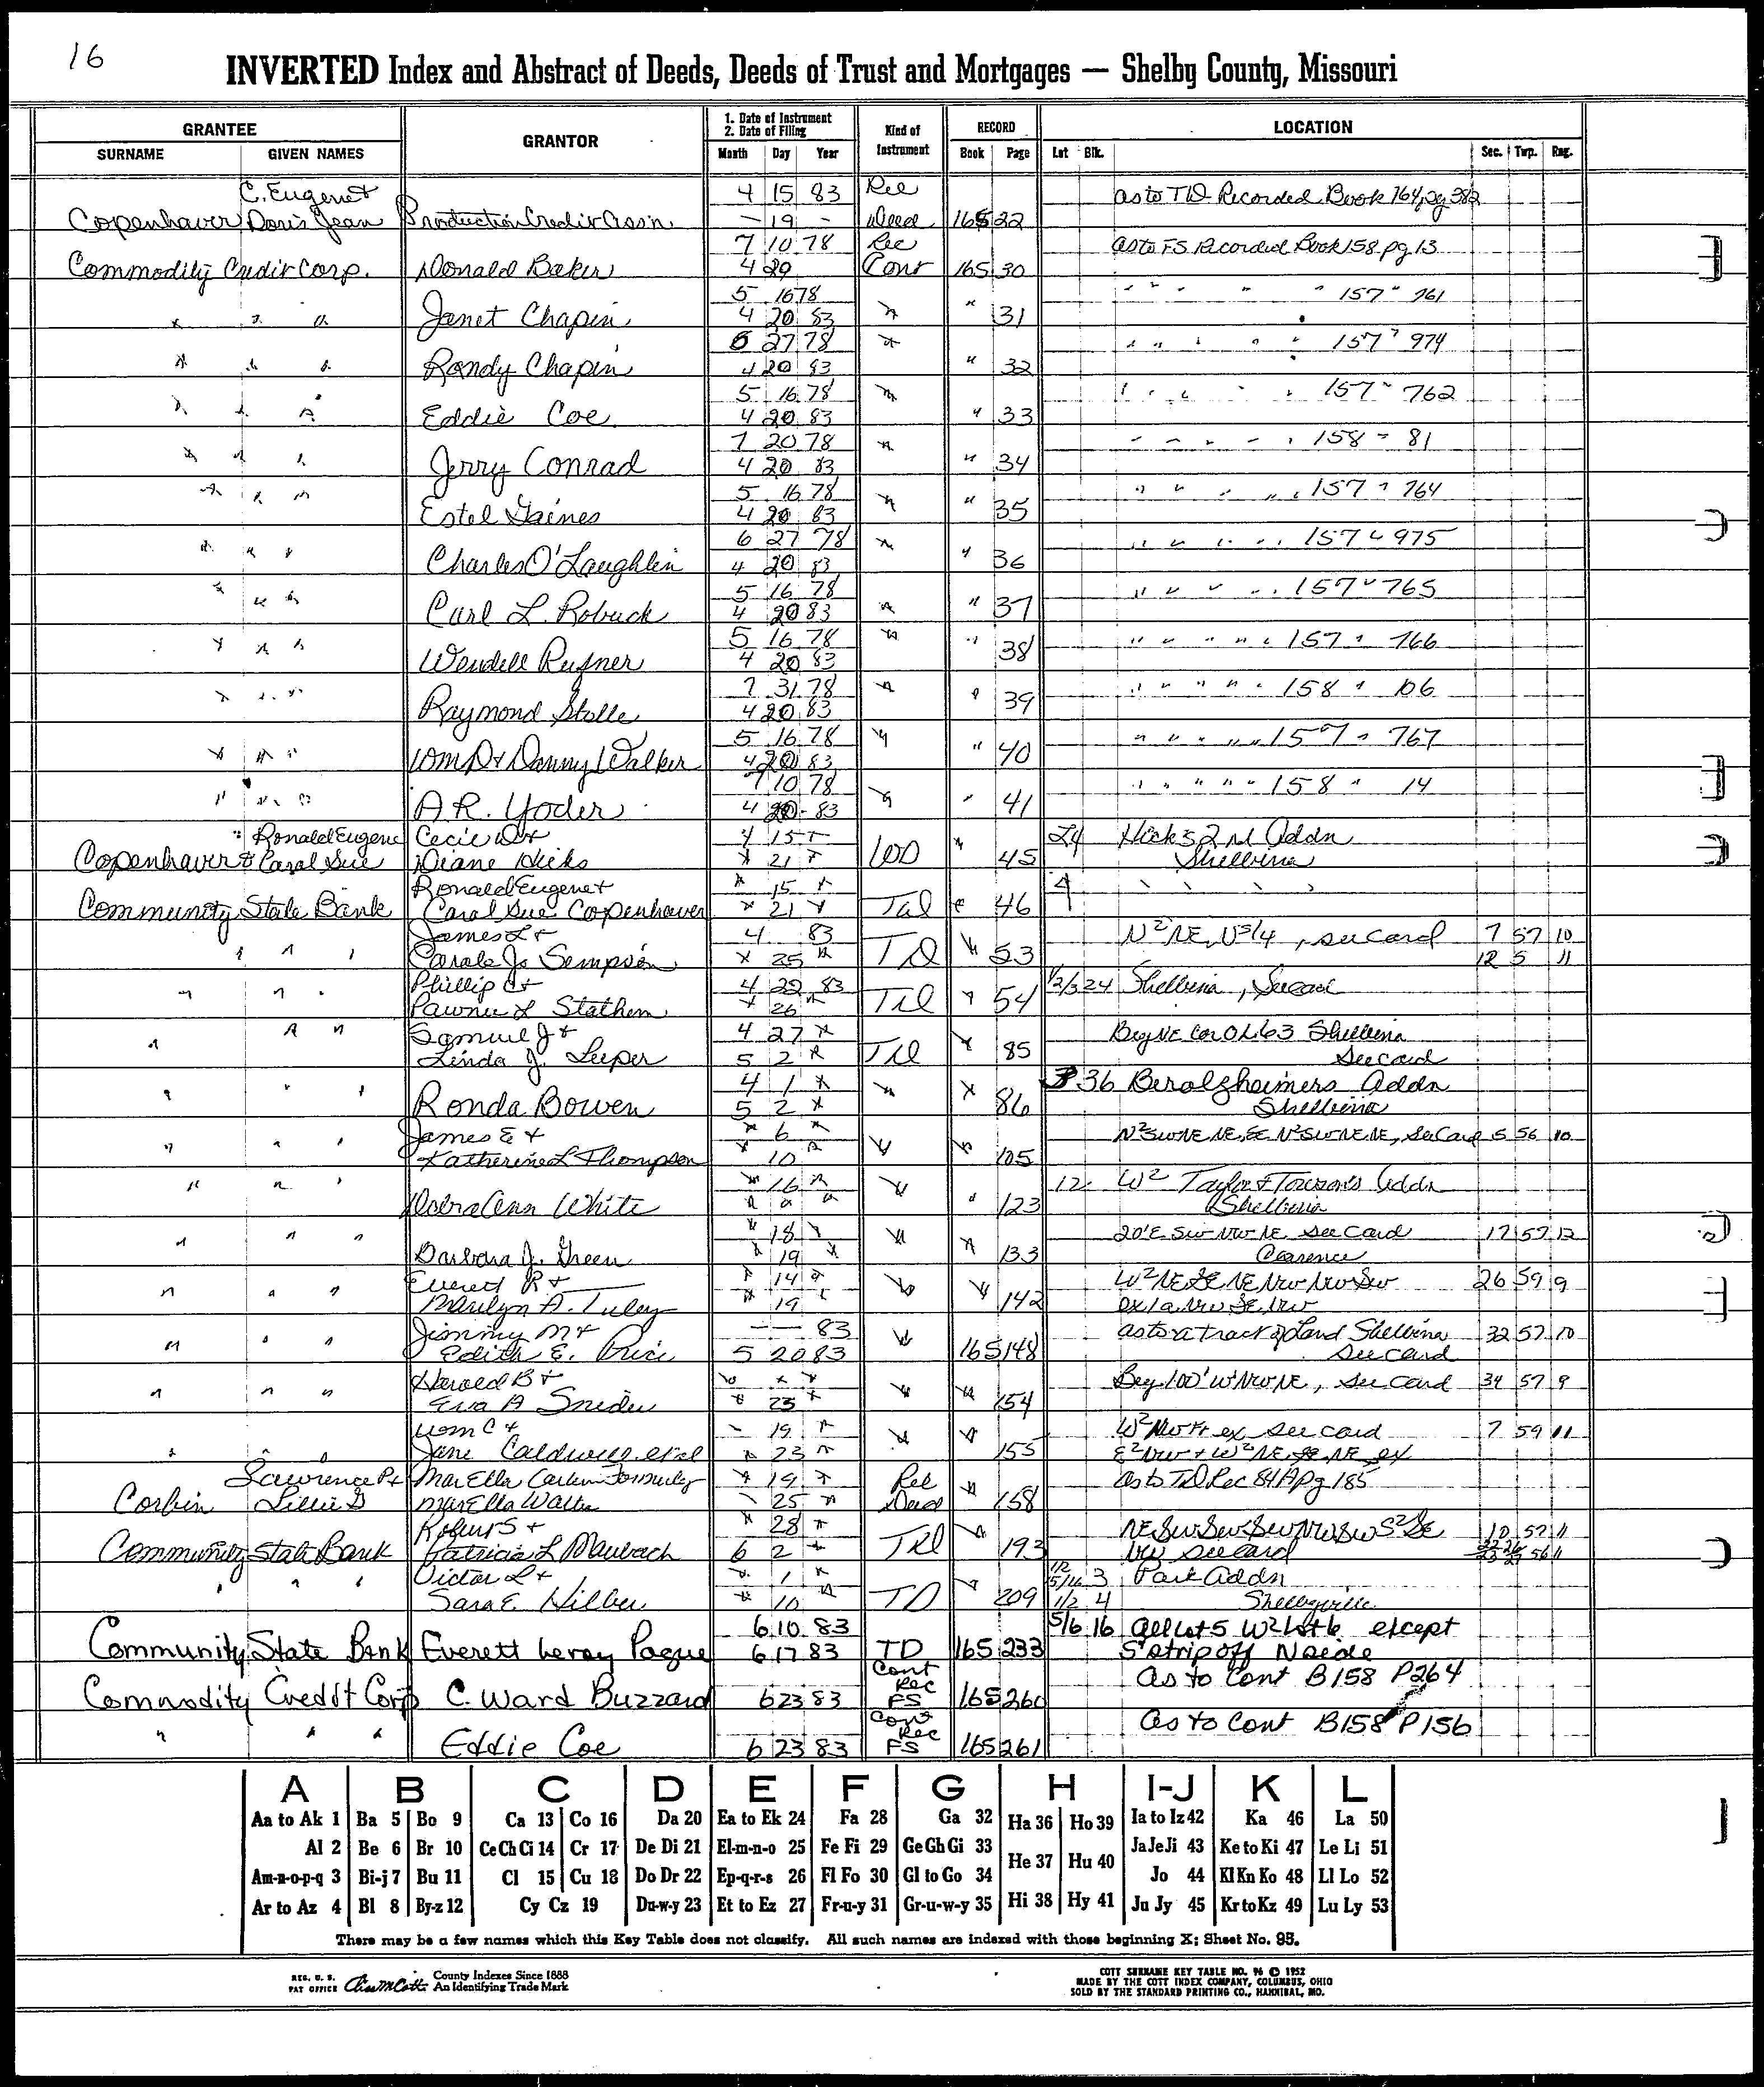 16
INVERTED Index and Abstract of Deeds, Deeds of Trust and Mortgages — Shelby County, Missouri
GRANTEE GRANTOR 1. Date of Instrument 2. Date of Filing Kind of Instrument RECORD LOCATION
SURNAME GIVEN NAMES Month Day Year Book Page Lot Blk. Sec. Twp. Rng.
C. Eugene + 4 15 83 Rel as to TD Recorded Book 164, pg 382
Copenhaver Doris Jean Production Credit Assn. — 19 - Deed 165 22
7 10 78 Rec as to FS Recorded Book 158 pg 13
Commodity Credit Corp. Donald Baker 4 20 Cont 165 30
5 16 78 " " " " " 157 " 761
" " " Janet Chapin 4 20 83 " " 31
6 27 78 " " " " " 157 " 974
" " " Randy Chapin 4 20 83 " " 32
5 16 78 " " " " " 157 " 762
" " " Eddie Coe 4 20 83 " " 33
7 20 78 " " " " " 158 " 81
" " " Jerry Conrad 4 20 83 " " 34
5 16 78 " " " " " 157 " 764
" " " Estel Gaines 4 20 83 " " 35
6 27 78 " " " " " 157 " 975
" " " Charles O'Laughlin 4 20 83 " " 36
5 16 78 " " " " " 157 " 765
" " " Carl L. Robuck 4 20 83 " " 37
5 16 78 " " " " " 157 " 766
" " " Wendell Rufner 4 20 83 " " 38
7 31 78 " " " " " 158 " 106
" " " Raymond Stolle 4 20 83 " " 39
5 16 78 " " " " " 157 " 767
" " " Wm D + Danny Walker 4 20 83 " " 40
7 10 78 " " " " " 158 " 14
" " " A R. Yoder 4 20 - 83 " " 41
" Ronald Eugene Cecil D + 4 15 " L4 Hicks 2nd Addn
Copenhaver & Carol Sue Diane Hicks " 21 " WD " 45 Shelbina
Ronald Eugene + " 15 " 4 " " " "
Community State Bank Carol Sue Copenhaver " 21 " Td " 46
James L + 4 83 N² NE, , see card 7 57 10
" " " Carole Jo Sempson " 25 " TD " 53 12 5 11
Phillip C + 4 22 83 1/2/3 24 Shelbina, See card
" " " Pawnee L Stathem " 26 " Td " 54
" " Samuel J + 4 27 " Beg NE Cor OL 63 Shelbina
" Linda J. Leeper 5 2 " Td " 85 See card
4 1 " 36 Berolzheimers Addn
" " " Ronda Bowen 5 2 " " " 86 Shelbina
James E + " 6 " N² SW NE NE, SE N² SW NE NE, See Card 5 56 10
" " " Katherine L Thompson " 10 " " " 105
" 16 " 12 W² Taylor & Towson's Addn
" " " Debra Ann White " " " " " 123 Shelbina
" 18 " 20' E SW NW NE See Card 17 57 12
" " " Barbara J. Green " 19 " " " 133 Clarence
Everett R + " 14 " W² NE SE NE NW NW SW 26 59 9
" " " Marilyn A. Luley " 19 " " " 142 ex 1a NW SE NW
Jimmy M + — — 83 as to a tract of Land Shelbina 32 57 10
" " " Edith E. Price 5 20 83 " 165 148 see card
Harold B + " " " Beg 100' W NW NE, see card 34 57 9
" " " Eva A Snider " 23 " " " 154
Wm C + " 19 " W² NW 4 ex see card 7 59 11
" " " Jane Caldwell, et al " 23 " " " 155 E² NW + W² NE, SE, NE ex
Lawrence P + MarElla Carlin Formerly " 19 " Rel as to TD Rec 84A pg 185
Corbin Lillie G MarElla Walter " 25 " Deed " 158
Robert S + " 28 " NE SW SW SW NW SW S² SE 10 57 11
Community State Bank Patricia L Maubach 6 2 " Td " 193 NW see card
Victor L + " 1 " 5/16 3 Park Addn
" " " Sara E. Hilber " 10 " TD " 209 1/2 4 Shelbyville
6 10 83 5/6 16 all Lot 5 W² Lot 6 except
Community State Bank Everett Leroy Pogue 6 17 83 TD 165 233 S strip off N side
Cont Rec As to Cont B158 P264
Commodity Credit Corp C. Ward Buzzard 6 23 83 FS 165 260
Cont Rec As to Cont B158 P156
" " " Eddie Coe 6 23 83 FS 165 261
A B C D E F G H I-J K L
Aa to Ak 1 Ba 5 Bo 9 Ca 13 Co 16 Da 20 Ea to Ek 24 Fa 28 Ga 32 Ha 36 Ho 39 Ia to Iz 42 Ka 46 La 50
Al 2 Be 6 Br 10 Ce Ch Ci 14 Cr 17 De Di 21 El-m-n-o 25 Fe Fi 29 Ge Gh Gi 33 He 37 Hu 40 Ja Je Ji 43 Ke to Ki 47 Le Li 51
Am-n-o-p-q 3 Bi-j 7 Bu 11 Cl 15 Cu 18 Do Dr 22 Ep-q-r-s 26 Fl Fo 30 Gl to Go 34 Jo 44 Kl Kn Ko 48 Ll Lo 52
Ar to Az 4 Bl 8 By-z 12 Cy Cz 19 Du-w-y 23 Et to Ez 27 Fr-u-y 31 Gr-u-w-y 35 Hi 38 Hy 41 Ju Jy 45 Kr to Kz 49 Lu Ly 53
There may be a few names which this Key Table does not classify. All such names are indexed with those beginning X; Sheet No. 95.
REG. U. S. PAT OFFICE County Indexes Since 1888 An Identifying Trade Mark
COTT SURNAME KEY TABLE NO. 96 © 1952
MADE BY THE COTT INDEX COMPANY, COLUMBUS, OHIO
SOLD BY THE STANDARD PRINTING CO., HANNIBAL, MO.